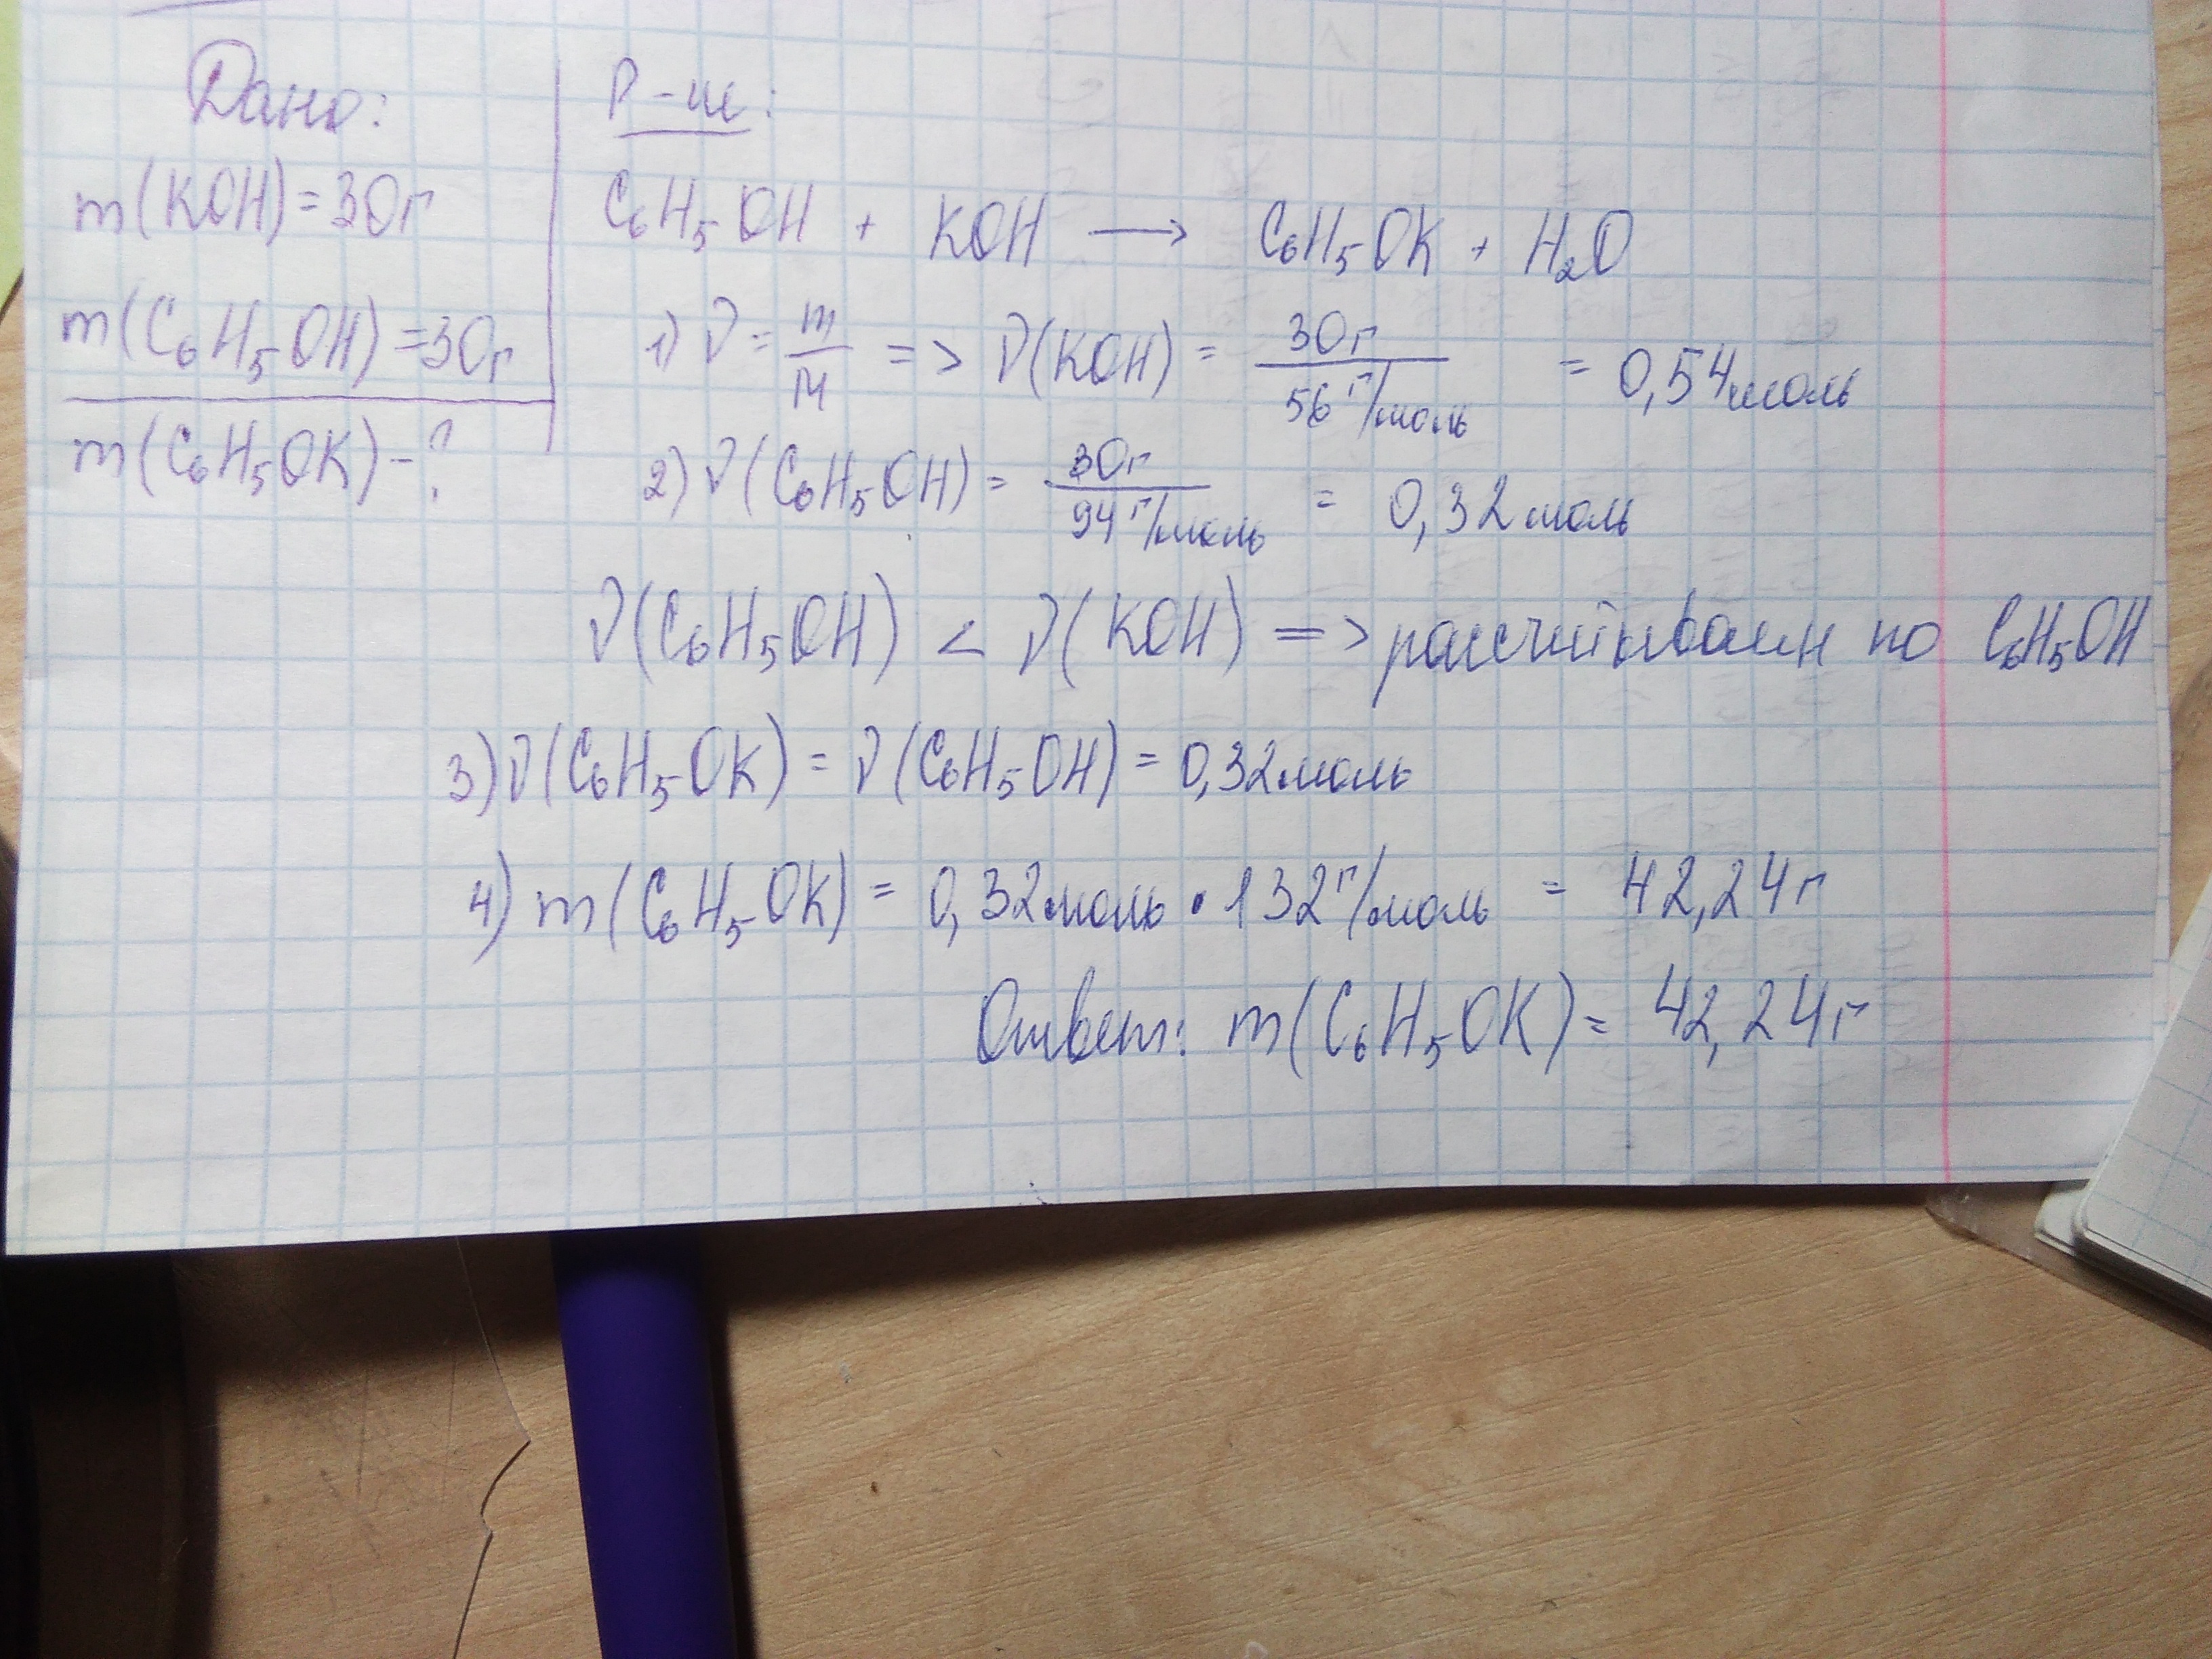 Дано:
m(KOH)=30г
m(C₆H₅OH)=30г
m(C₆H₅OK)-?
Р-ие:
C₆H₅OH + KOH → C₆H₅OK + H₂O
1) ν = m/M => ν(KOH) = 30г / 56 г/моль = 0,54моль
2) ν(C₆H₅OH) = 30г / 94 г/моль = 0,32моль
ν(C₆H₅OH) < ν(KOH) => рассчитываем по C₆H₅OH
3) ν(C₆H₅OK) = ν(C₆H₅OH) = 0,32моль
4) m(C₆H₅OK) = 0,32моль • 132 г/моль = 42,24г
Ответ: m(C₆H₅OK) = 42,24г